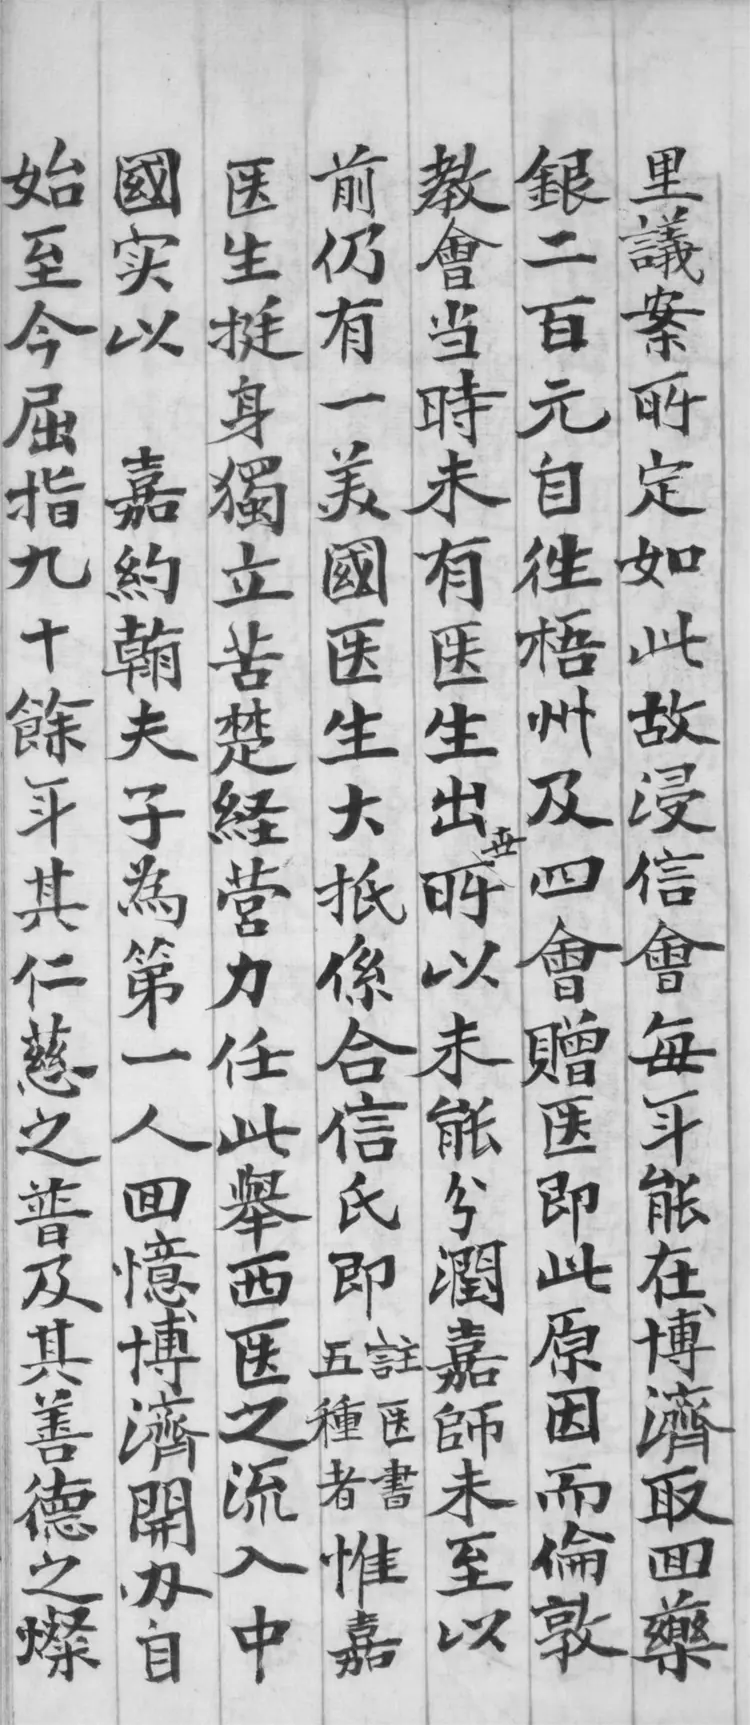 里議案所定如此故浸信會每年能在博濟取回藥
銀二百元自往梧州及四會贈医即此原因而倫敦
教會当時未有医生出世所以未能分潤嘉師未至以
前仍有一美國医生大抵係合信氏即註医書五種者惟嘉
医生挺身獨立苦楚経营力任此舉西医之流入中
國实以 嘉約翰夫子為第一人回憶博濟開办自
始至今屈指九十餘年其仁慈之普及其善德之燦